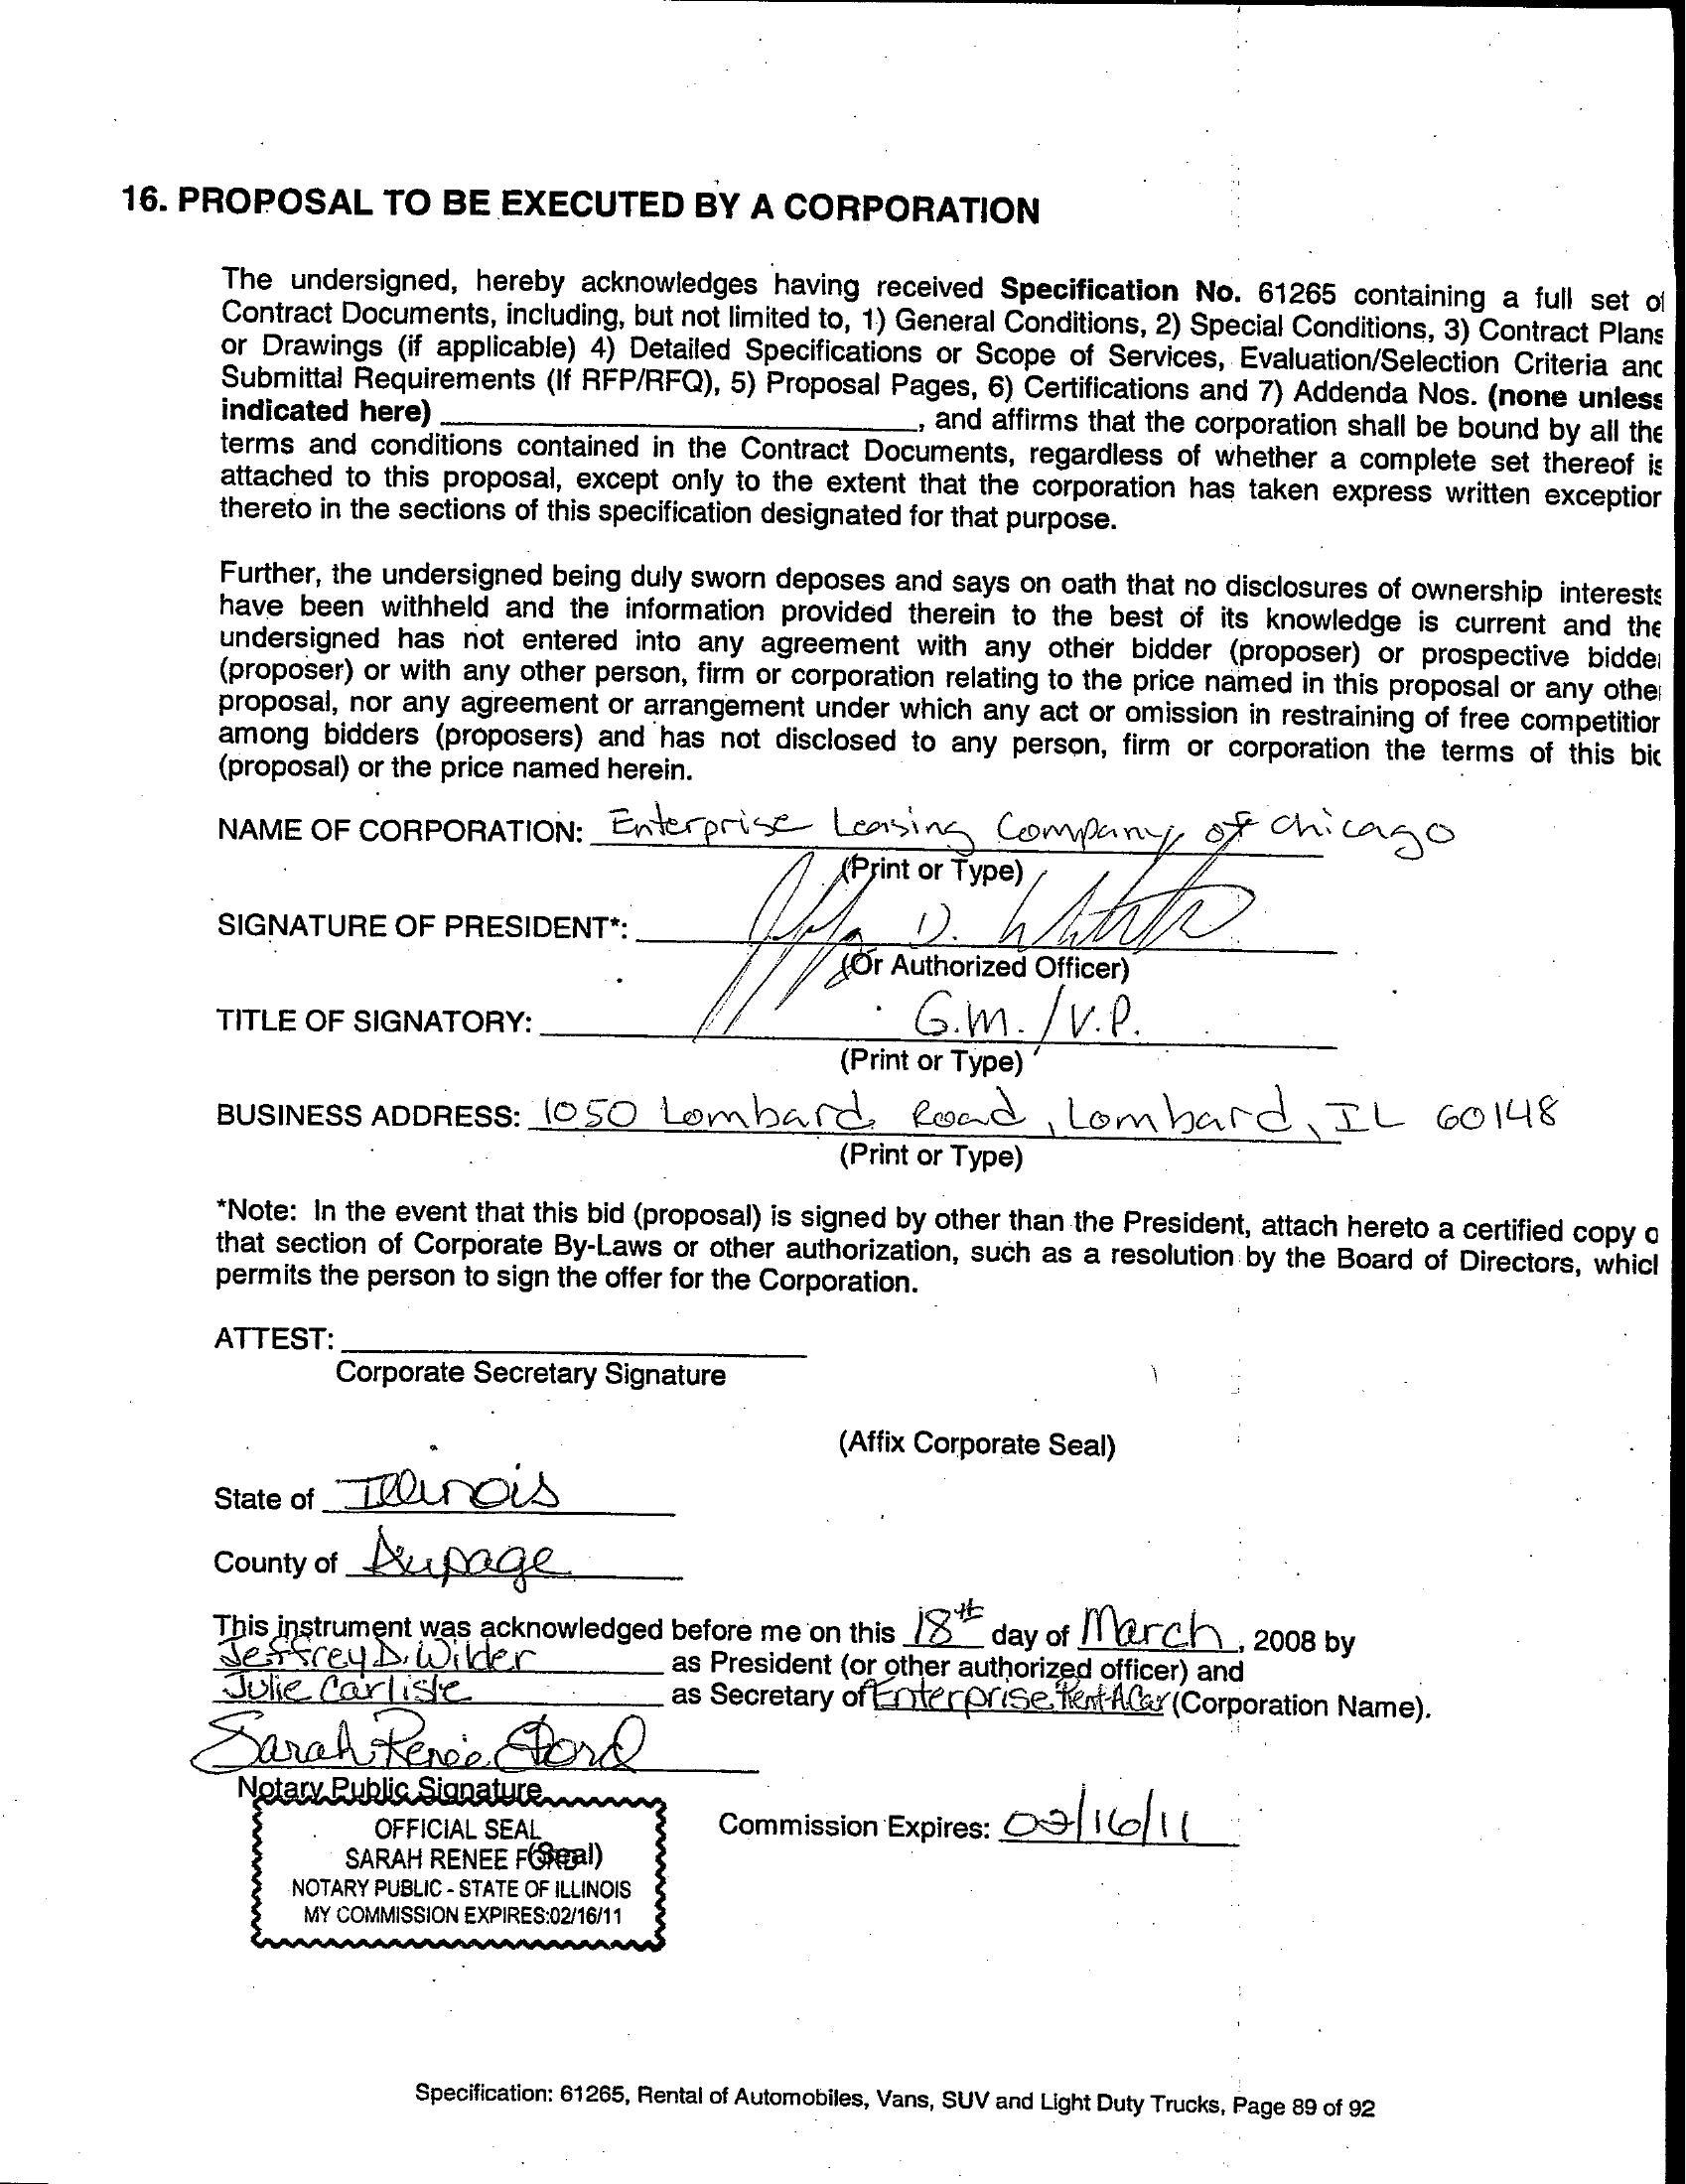 16. PROPOSAL TO BE EXECUTED BY A CORPORATION
The undersigned, hereby acknowledges having received Specification No. 61265 containing a full set of
Contract Documents, including, but not limited to, 1) General Conditions, 2) Special Conditions, 3) Contract Plans
or Drawings (if applicable) 4) Detailed Specifications or Scope of Services, Evaluation/Selection Criteria and
Submittal Requirements (If RFP/RFQ), 5) Proposal Pages, 6) Certifications and 7) Addenda Nos. (none unless
indicated here) ____, and affirms that the corporation shall be bound by all the
terms and conditions contained in the Contract Documents, regardless of whether a complete set thereof is
attached to this proposal, except only to the extent that the corporation has taken express written exception
thereto in the sections of this specification designated for that purpose.
Further, the undersigned being duly sworn deposes and says on oath that no disclosures of ownership interests
have been withheld and the information provided therein to the best of its knowledge is current and the
undersigned has not entered into any agreement with any other bidder (proposer) or prospective bidder
(proposer) or with any other person, firm or corporation relating to the price named in this proposal or any other
proposal, nor any agreement or arrangement under which any act or omission in restraining of free competition
among bidders (proposers) and has not disclosed to any person, firm or corporation the terms of this bid
(proposal) or the price named herein.
NAME OF CORPORATION: Enterprise Leasing Company of Chicago
(Print or Type)
SIGNATURE OF PRESIDENT*:
(Or Authorized Officer)
TITLE OF SIGNATORY: G.M./V.P.
(Print or Type)
BUSINESS ADDRESS: 1050 Lombard Road, Lombard, IL 60148
(Print or Type)
*Note: In the event that this bid (proposal) is signed by other than the President, attach hereto a certified copy o
that section of Corporate By-Laws or other authorization, such as a resolution by the Board of Directors, which
permits the person to sign the offer for the Corporation.
ATTEST:
Corporate Secretary Signature
(Affix Corporate Seal)
State of Illinois
County of Dupage
This instrument was acknowledged before me on this 18th day of March, 2008 by
Jeffrey D. Wilder as President (or other authorized officer) and
Julie Carlisle as Secretary of Enterprise Rent A Car (Corporation Name).
Sarah Renee Ford
Notary Public Signature
OFFICIAL SEAL
SARAH RENEE F (Seal)
NOTARY PUBLIC - STATE OF ILLINOIS
MY COMMISSION EXPIRES:02/16/11
Commission Expires: 02/16/11
Specification: 61265, Rental of Automobiles, Vans, SUV and Light Duty Trucks, Page 89 of 92